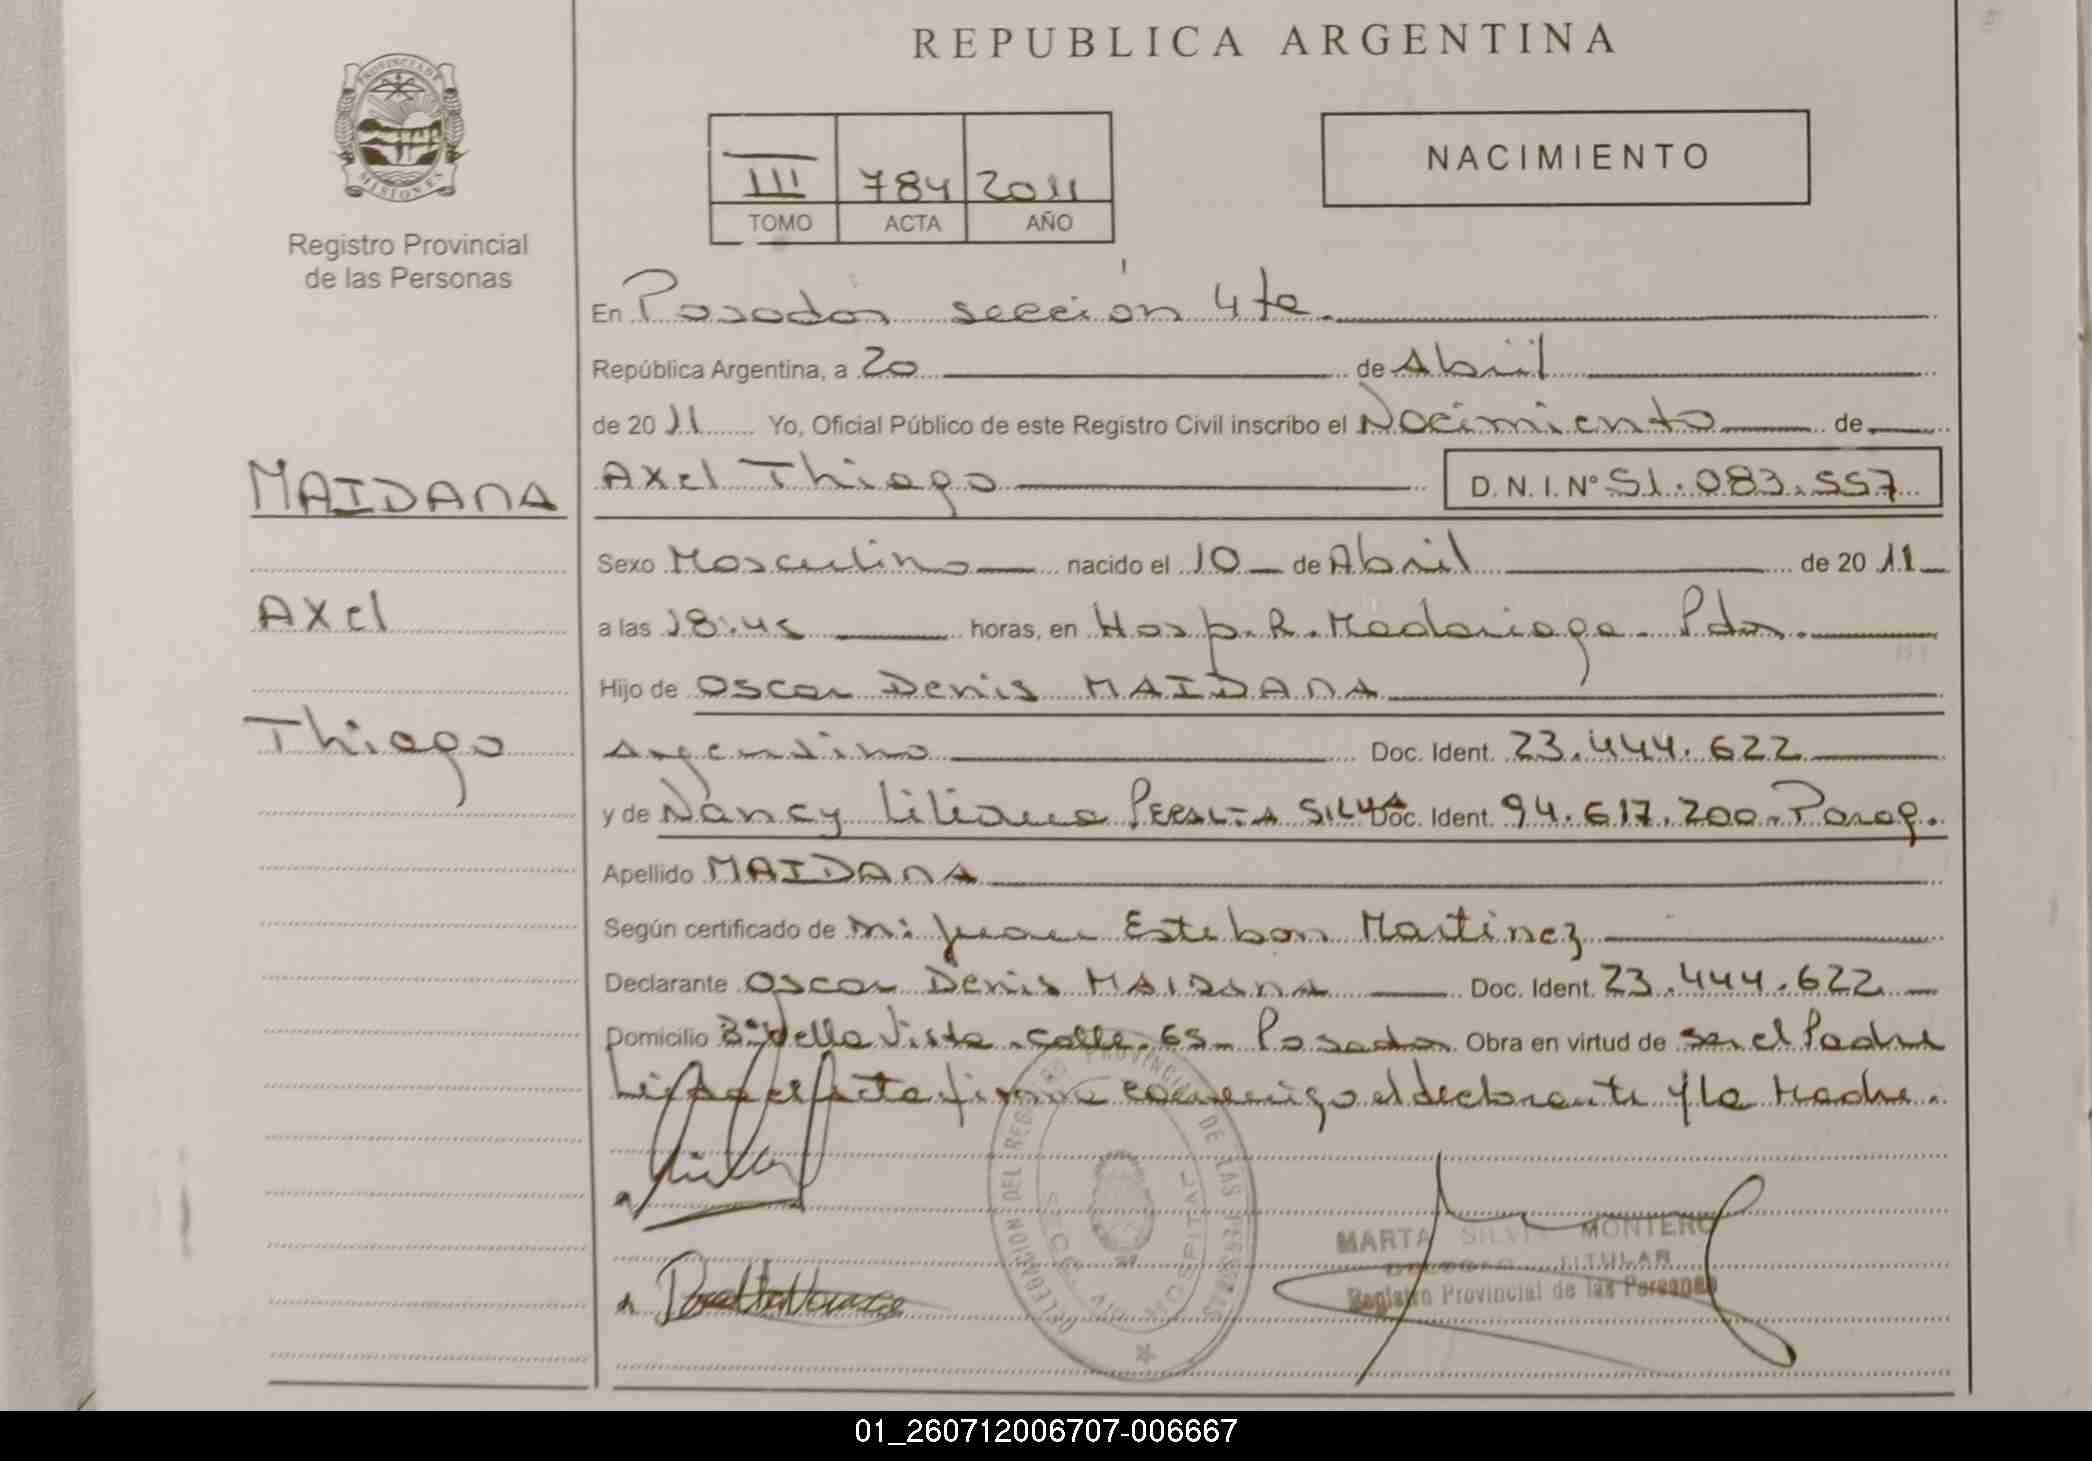 REPUBLICA ARGENTINA
PROVINCIA DE
MISIONES
Registro Provincial
de las Personas
III 784 2011
TOMO ACTA AÑO
NACIMIENTO
En Posadas sección 4ta.
República Argentina, a 20 de Abril
de 2011 Yo, Oficial Público de este Registro Civil inscribo el Nacimiento de
MAIDANA
Axel Thiago D. N. I. N° 51.083.557
Sexo Masculino nacido el 10 de Abril de 2011
Axel
a las 18:45 horas, en Hosp. R. Madariaga - Pdas.
Hijo de Oscar Denis MAIDANA
Thiago
Argentino Doc. Ident. 23.444.622
y de Nancy Liliana PERALTA SILVA Doc. Ident. 94.617.200 - Parag.
Apellido MAIDANA
Según certificado de Juan Esteban Martinez
Declarante Oscar Denis MAIDANA Doc. Ident. 23.444.622
Domicilio B° Bella Vista - calle 65 - Posadas Obra en virtud de ser el Padre
firma conmigo el declarante y la Madre.
DELEGACION DEL REGISTRO PROVINCIAL DE LAS PERSONAS
HOSPITAL
MARTA SILVIA MONTERO
TITULAR
Registro Provincial de las Personas
01_260712006707-006667